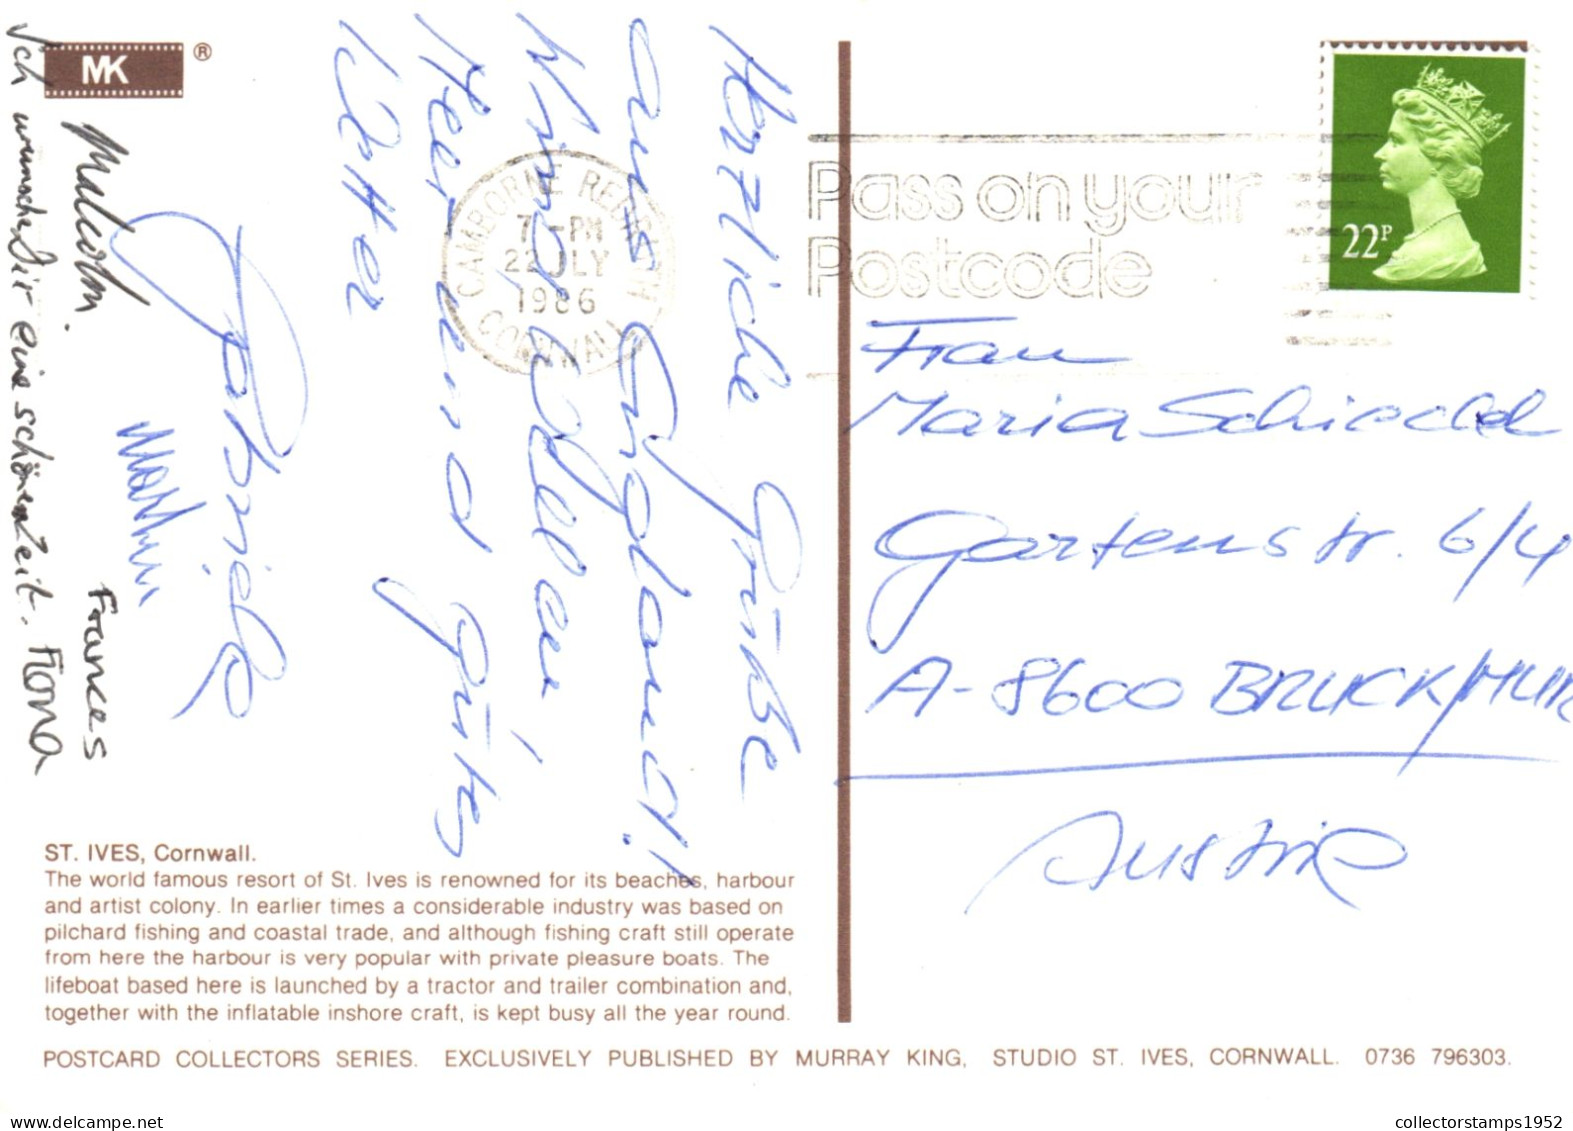 MK ®
Herzliche Grüße
aus England!
Wind, Wellen,
Meer und gutes
Wetter
Gabriele
Martin
Malcolm.
Frances
Ich wünsche Dir eine schöne Zeit. Fiona
CAMBORNE REDRUTH
7 - PM
22 JLY
1986
CORNWALL
Pass on your
Postcode
22P
Frau
Maria
Gartenstr. 6/4
A-8600 BRUCK/MUR
Austria
ST. IVES, Cornwall.
The world famous resort of St. Ives is renowned for its beaches, harbour
and artist colony. In earlier times a considerable industry was based on
pilchard fishing and coastal trade, and although fishing craft still operate
from here the harbour is very popular with private pleasure boats. The
lifeboat based here is launched by a tractor and trailer combination and,
together with the inflatable inshore craft, is kept busy all the year round.
POSTCARD COLLECTORS SERIES. EXCLUSIVELY PUBLISHED BY MURRAY KING, STUDIO ST. IVES, CORNWALL. 0736 796303.
collectorstamps1952